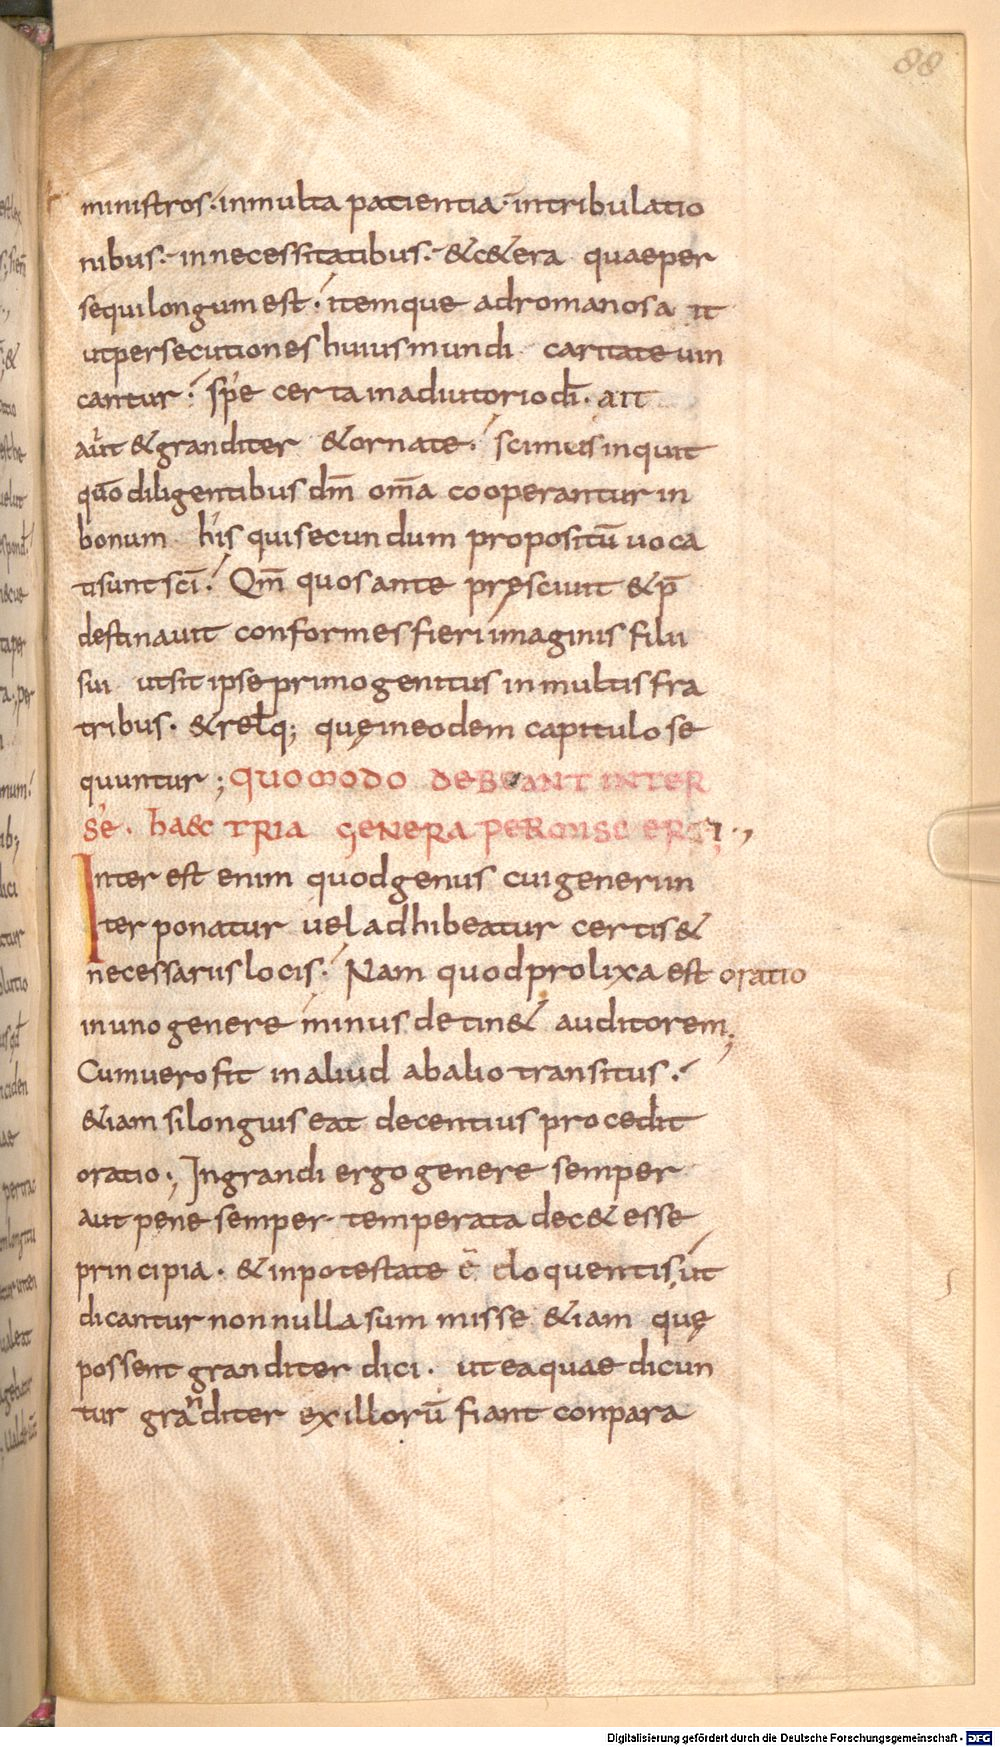 88
ministros· inmulta patientia· intribulatio
nibus· innecessitatibus· &c&era quaeper
sequi longum est· itemque adromanos a it
utpersecutiones huius mundi caritate uin
cantur· spe certa inadiutorio dī· ait
aūt &granditer &ornate· scimus inquit
quō diligentibus dm̄ om̄a cooperantur in
bonum his qui secundum propositū uoca
tisunt sc̄i· Qm̄ quos ante pręsciuit &p̄
destinauit conformes fieri imaginis filii
sui utsit ipse primogenitus in multis fra
tribus· &relq; quę ineodem capitulo se
quuntur; QUOMODO DEBEANT INTER
SE· haec TRIA GENERA
Inter est enim quodgenus cui generi in
ter ponatur uel adhibeatur certis &
necessariis locis· Nam quod prolixa est oratio
inuno genere minus detin& auditorem;
Cumuero fit inaliud abalio transitus·
&iam si longius eat decentius procedit
oratio; In grandi ergo genere semper
aut pene semper temperata dec& esse
principia· &inpotestate ē eloquentis, ut
dicantur non nulla summisse &iam quę
possent granditer dici· ut eaquae dicun
tur granditer exillorū fiant conpara
Digitalisierung gefördert durch die Deutsche Forschungsgemeinschaft - DFG